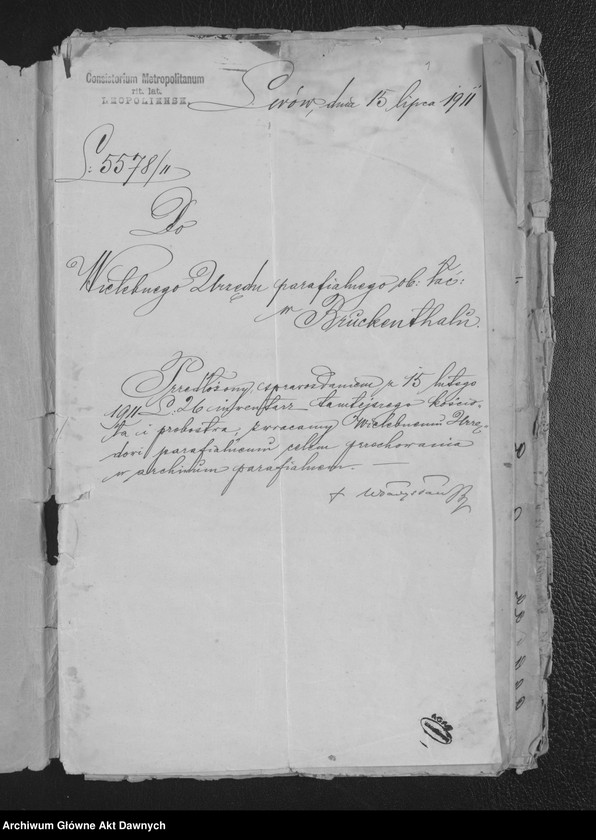 Consistorium Metropolitanum
rit. lat.
LEOPOLIENSE.
Lwów, dnia 15 lipca 1911
L: 5578/11
Do
Wielebnego Urzędu parafialnego ob: łać:
w Bruckenthalu.
Przedłożony sprawozdaniem z 15 lutego
1911 L. 26 inwentarz tamtejszego kościo-
ła i probostwa, zwracamy Wielebnemu Urzę-
dowi parafialnemu celem przechowania
w archiwum parafialnem. —
+ Władysław
AGAD
Archiwum Główne Akt Dawnych